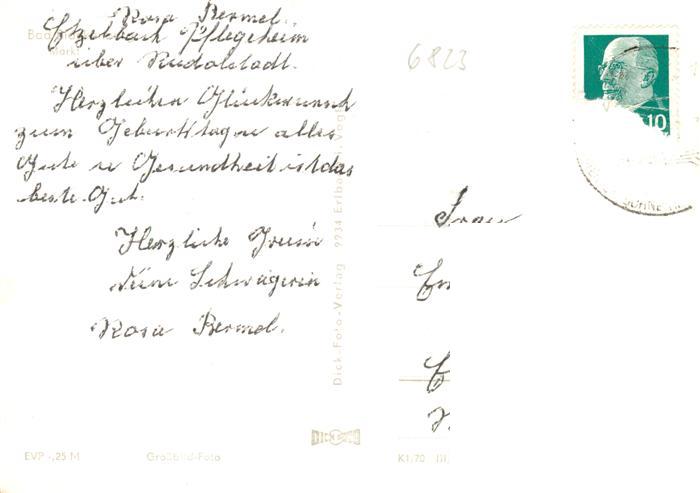 Rosa Bermel.
Etzelbach Pflegeheim
über Rudolstadt.
Herzlichen Glückwunsch
zum Geburtstag u alles
Gute u Gesundheit ist das
beste Gut.
Herzliche Grüße
Deine Schwägerin
Rosa Bermel.
Bad
Markt
EVP -,25 M
Großbild-Foto
Dick-Foto-Verlag 9934 Erlbach i. Vogtl.
DICK
6823
10
Frau
K1/70 III